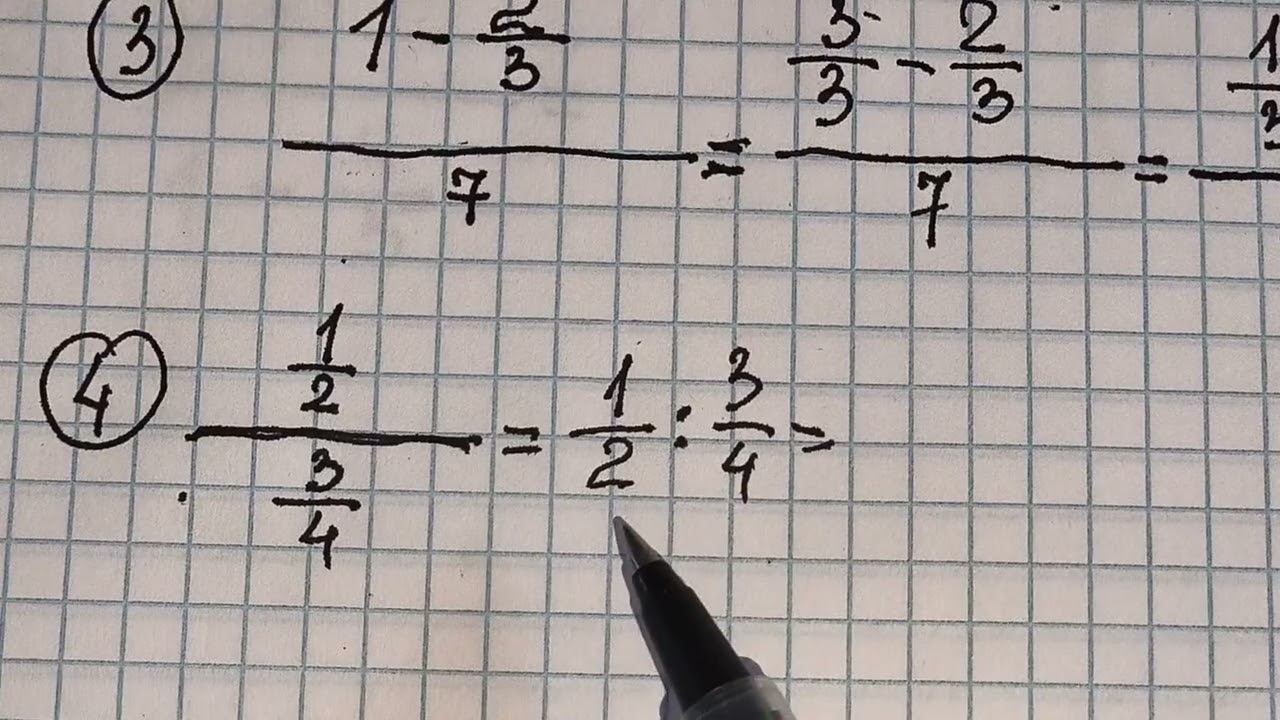 ③ (1 - 2/3)/7 = (3/3 - 2/3)/7 =
④ (1/2)/(3/4) = 1/2 : 3/4 =